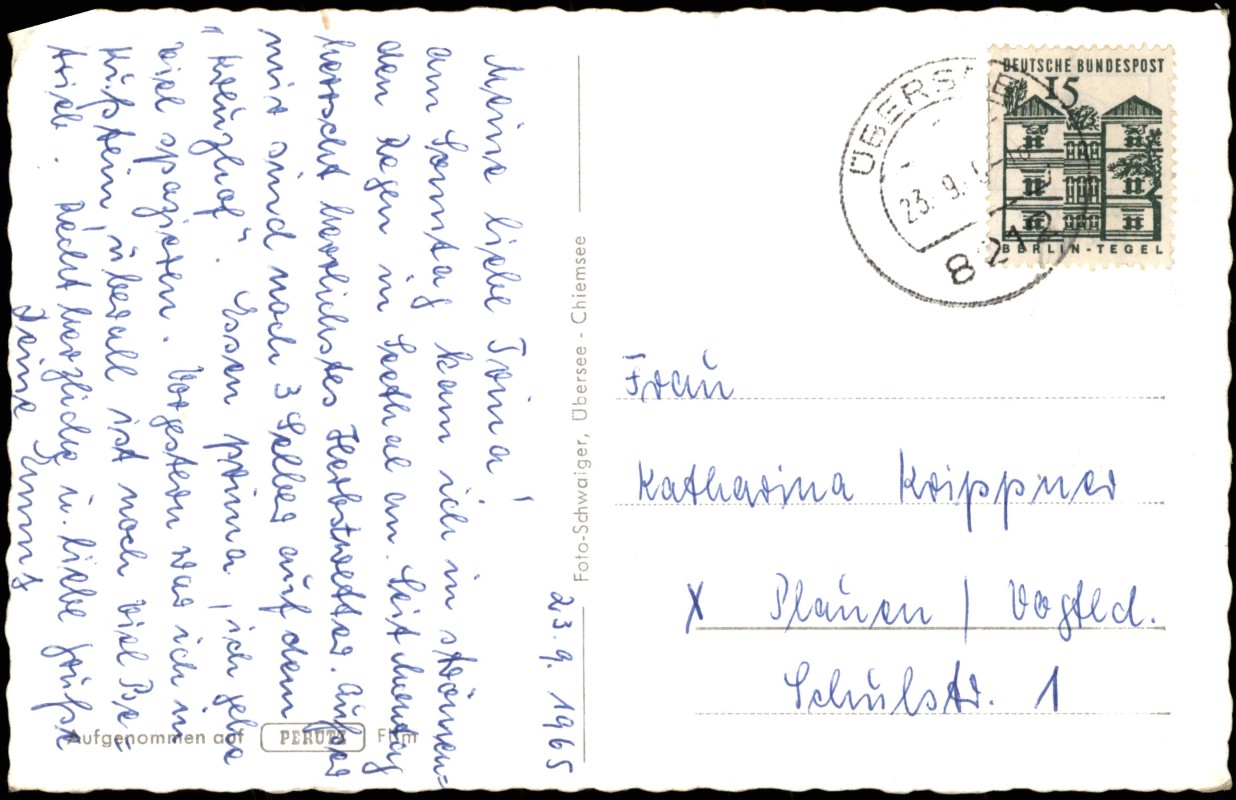 23. 9. 1965
Meine liebe Toina!
am Sonntag kam ich in strömen=
den Regen in Seethal an. Seit Montag
herrscht herrlichstes Herbstwetter. Außer
mir sind noch 3 Selber auf dem
"Kreuzhof". Essen prima, ich gehe
viel spazieren. Vorgestern war ich in
Kufstein, überall ist noch viel Be=
trieb. Recht herzliche u. liebe Grüße
Deine
Foto-Schwaiger, Übersee - Chiemsee
Aufgenommen auf PERUTZ Film
ÜBERSEE
23. 9.
8212
DEUTSCHE BUNDESPOST
15
BERLIN-TEGEL
Frau
Katharina Krippner
X Plauen / Vogtld.
Schulstr. 1